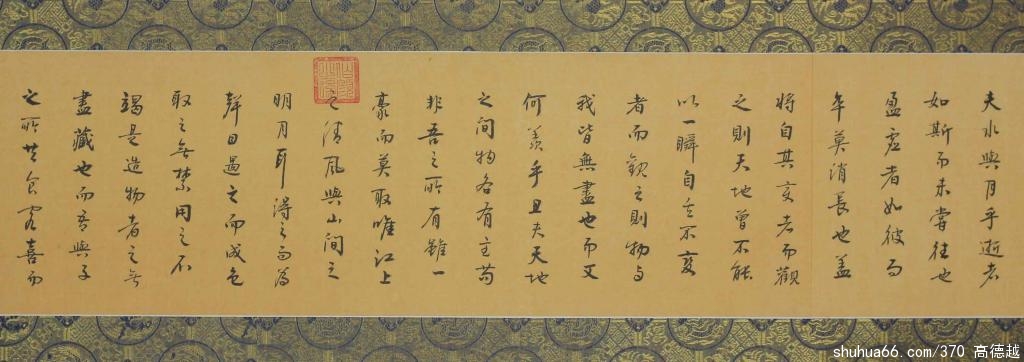 夫水與月乎逝者
如斯而未嘗往也
盈虚者如彼而
卒莫消長也蓋
將自其变者而觀
之則天地曾不能
以一瞬自其不變
者而觀之則物与
我皆無盡也而又
何羡乎且夫天地
之间物各有主苟
非吾之所有雖一
豪而莫取唯江上
之清風與山间之
明月耳得之而為
聲目遇之而成色
取之無禁用之不
竭是造物者之無
盡藏也而吾與子
之所共食客喜而
shuhua66.com/370 高德越